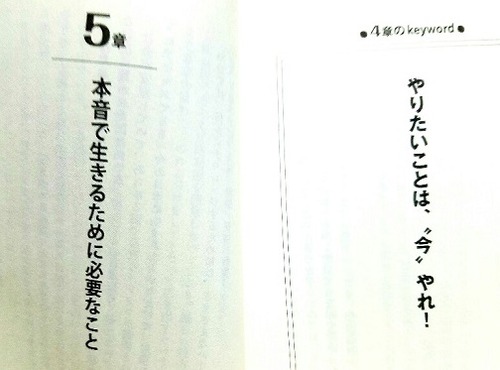 ●4章のkeyword●
やりたいことは、〝今〟やれ!
5章
本音で生きるために必要なこと